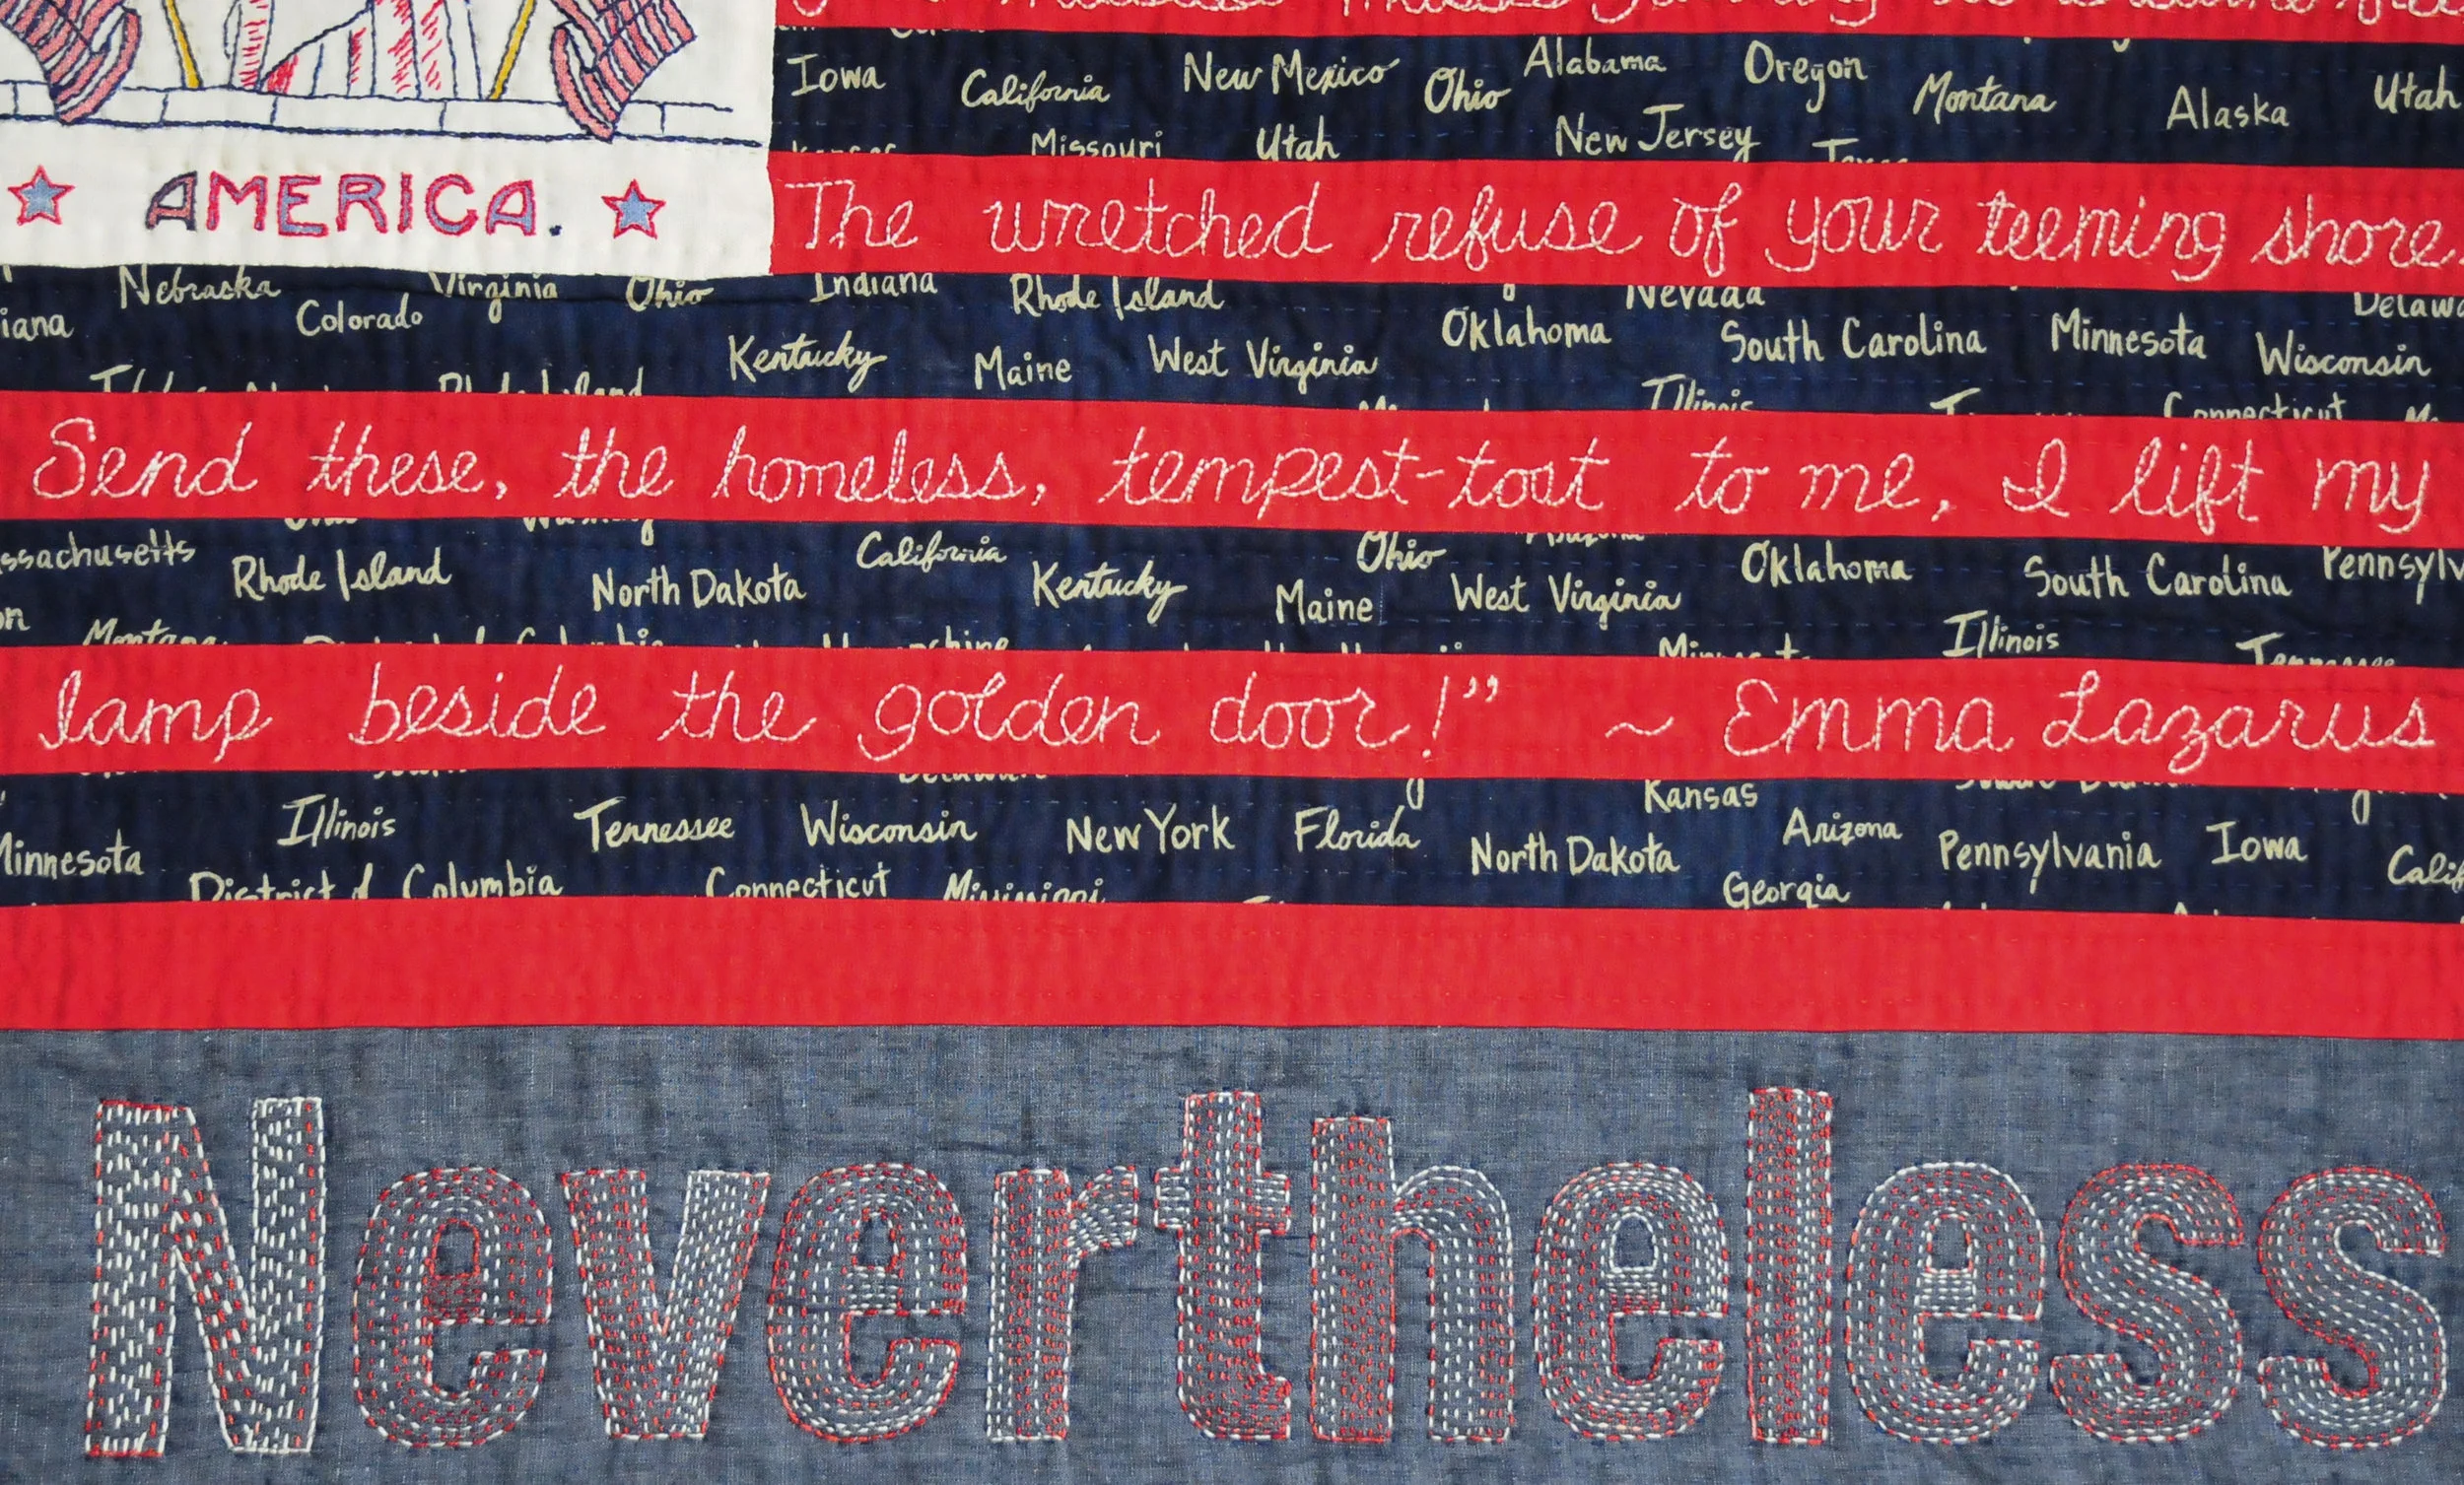 Iowa California New Mexico Ohio Alabama Oregon Montana Alaska Utah
Missouri Utah New Jersey
AMERICA.
The wretched refuse of your teeming shore.
Nebraska Virginia Ohio Indiana Rhode Island Nevada
Colorado Kentucky Maine West Virginia Oklahoma South Carolina Minnesota Wisconsin
Rhode Island Illinois Connecticut
Send these, the homeless, tempest-tost to me, I lift my
Rhode Island North Dakota California Kentucky Maine Ohio West Virginia Oklahoma South Carolina
Montana Illinois Tennessee
lamp beside the golden door!” ~ Emma Lazarus
Kansas
Minnesota Illinois Tennessee Wisconsin New York Florida North Dakota Arizona Pennsylvania Iowa
District of Columbia Connecticut Mississippi Georgia
Nevertheless